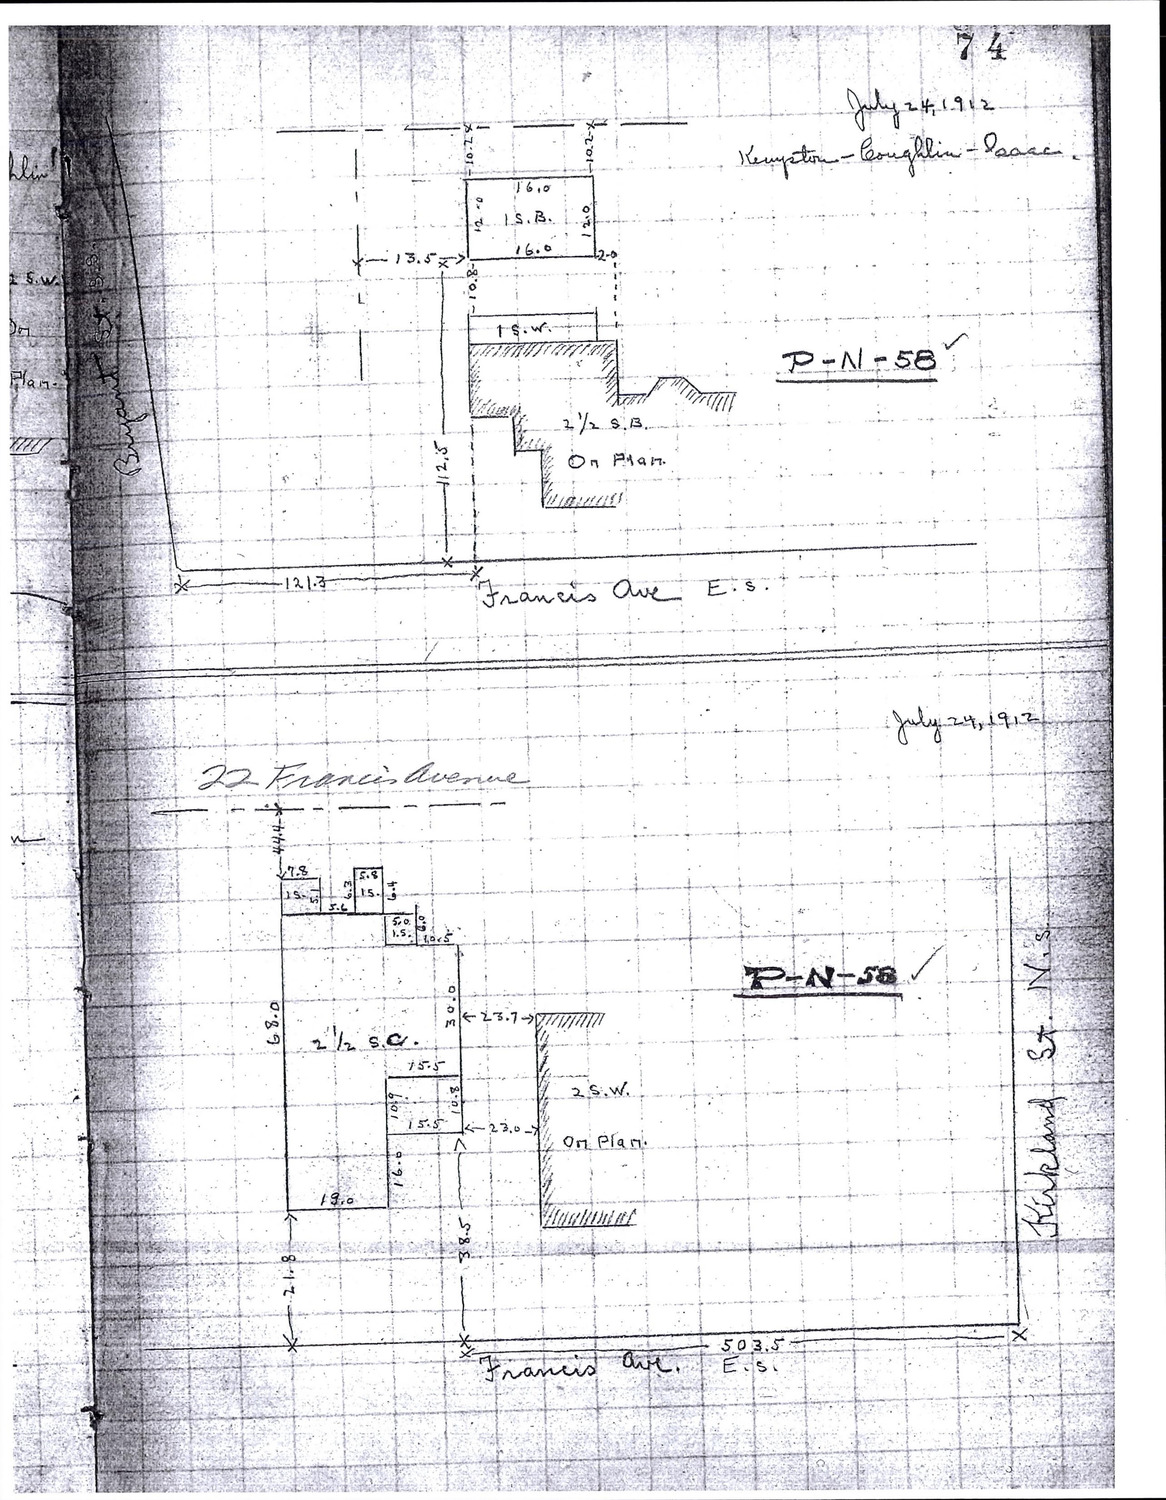 74
July 24, 1912
Kempston-Coughlin-Isaac.
10.2
10.2
16.0
12.0
1 S.B.
12.0
16.0
13.5
2.0
10.8
1 S.W.
P-N-58
2 1/2 S.B.
On Plan.
112.5
Bryant St. S.S.
121.3
Francis Ave E.S.
2 S.W.
Plan.
July 24, 1912
22 Francis Avenue
44.4
7.8
5.8
1 S.
5.1
6.3
1 S.
6.4
5.6
5.0
6.0
1.S.
10.5
P-N-58
68.0
30.0
23.7
2 1/2 S.C.
15.5
2 S.W.
10.9
10.8
15.5
23.0
On Plan.
16.0
19.0
Kirkland St. N.S.
21.8
38.5
503.5
Francis Ave. E.S.